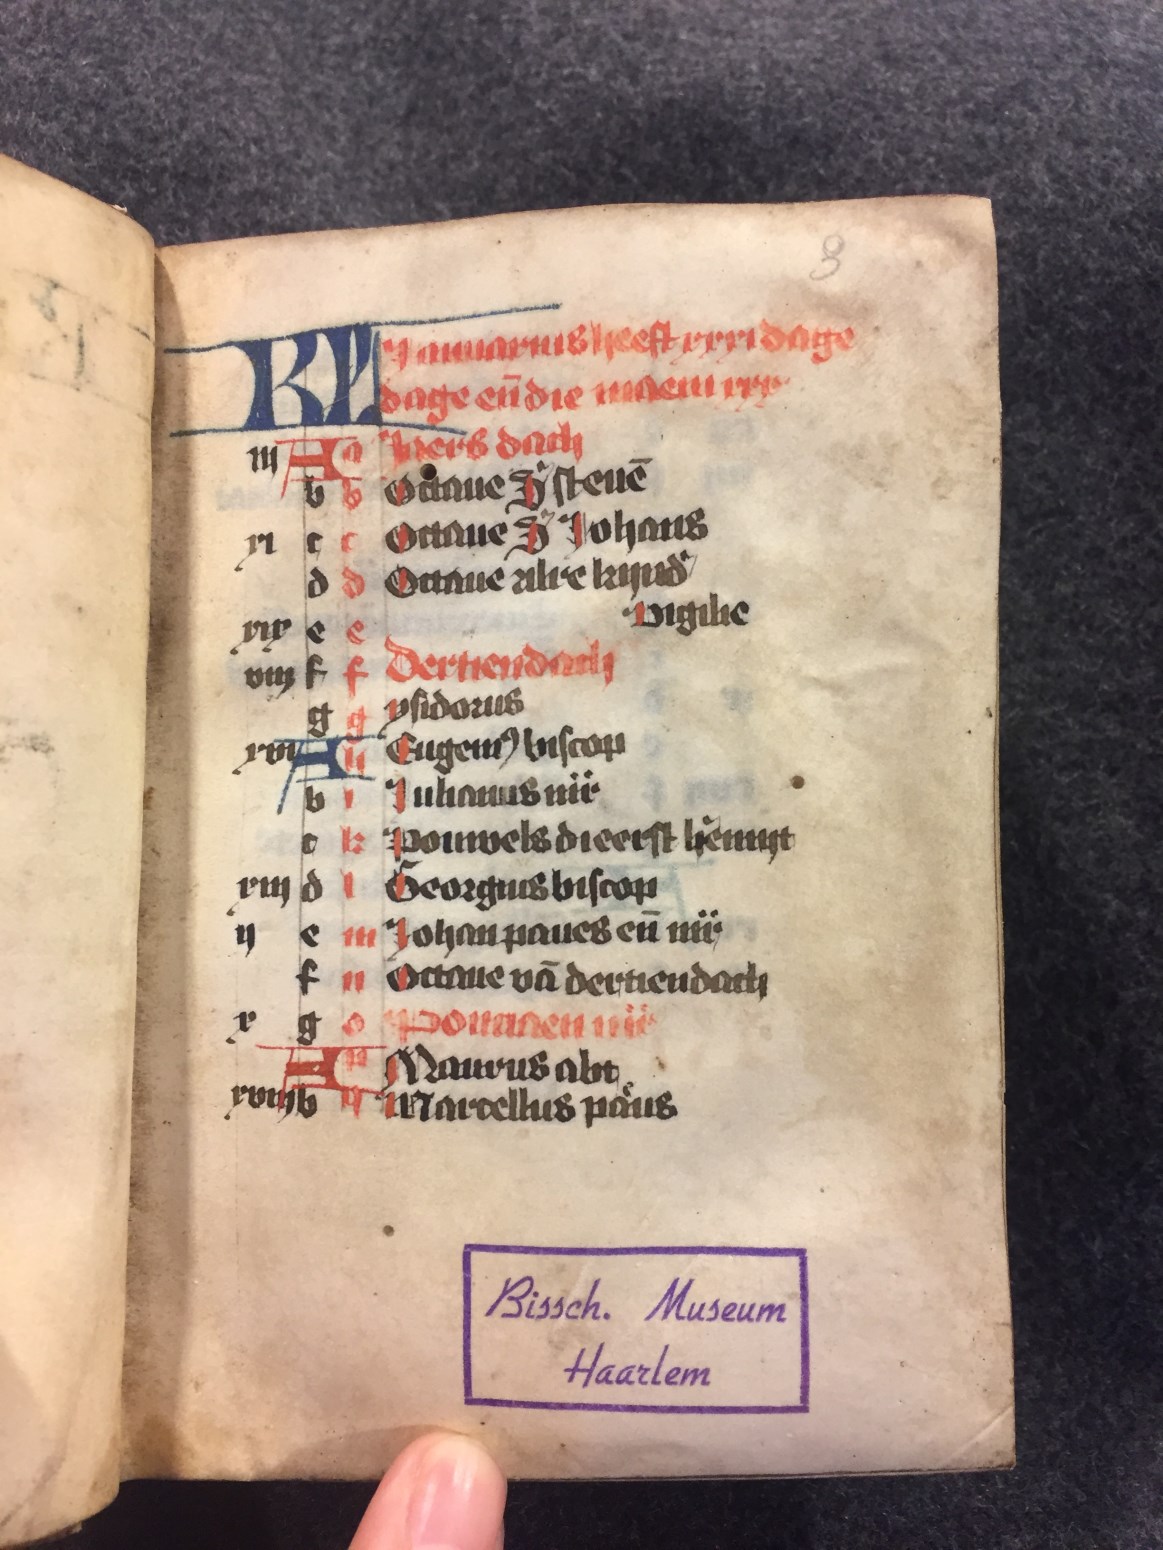 3
KL Januarius heeft xxxi dage
dage eñ die maen xxx
iij A a Jaers dach
b b Octaue S steuē
xi c c Octaue S Johans
d d Octaue alre kijnd
Vigilie
xix e e
viij f f Dertiendach
g g ysidorus
xvi A h Eugeni biscop
b i Julianus mr
c k Pouwels die eerst h'emijt
xiij d l Georgius biscop
ij e m Johan paues eñ mr
f n Octaue vā dertiendach
x g o Ponciaen mr
A p Maurus abt
xviij b q Marcellus paus
Bissch. Museum
Haarlem